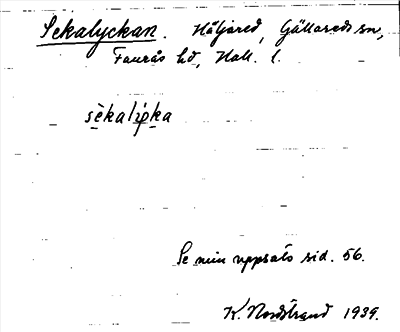 Sekalyckan. Häljared, Gällareds sn,
Faurås hd, Hall. l.
sèkalỳka
Se min uppsats sid. 56.
K. Nordstrand 1939.